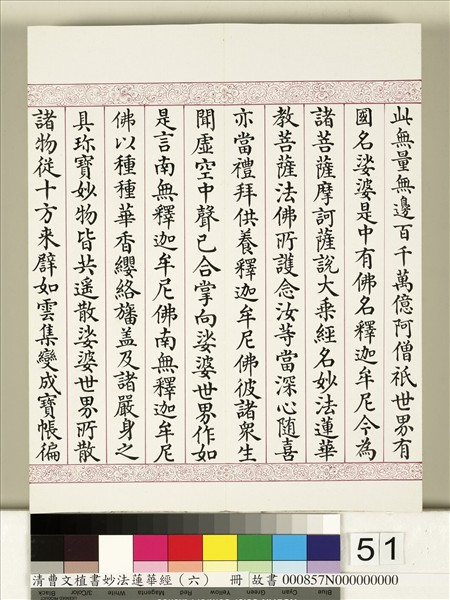 此無量無邊百千萬億阿僧祇世界有
國名娑婆是中有佛名釋迦牟尼今為
諸菩薩摩訶薩說大乘經名妙法蓮華
教菩薩法佛所護念汝等當深心隨喜
亦當禮拜供養釋迦牟尼佛彼諸衆生
聞虛空中聲已合掌向娑婆世界作如
是言南無釋迦牟尼佛南無釋迦牟尼
佛以種種華香纓絡旛盖及諸嚴身之
具珎寶妙物皆共遙散娑婆世界所散
諸物從十方來辟如雲集變成寶帳徧
51
Black 3/Color White Magenta Red Yellow Green Cyan Blue
清曹文植書妙法蓮華經（六） 冊 故書 000857N000000000